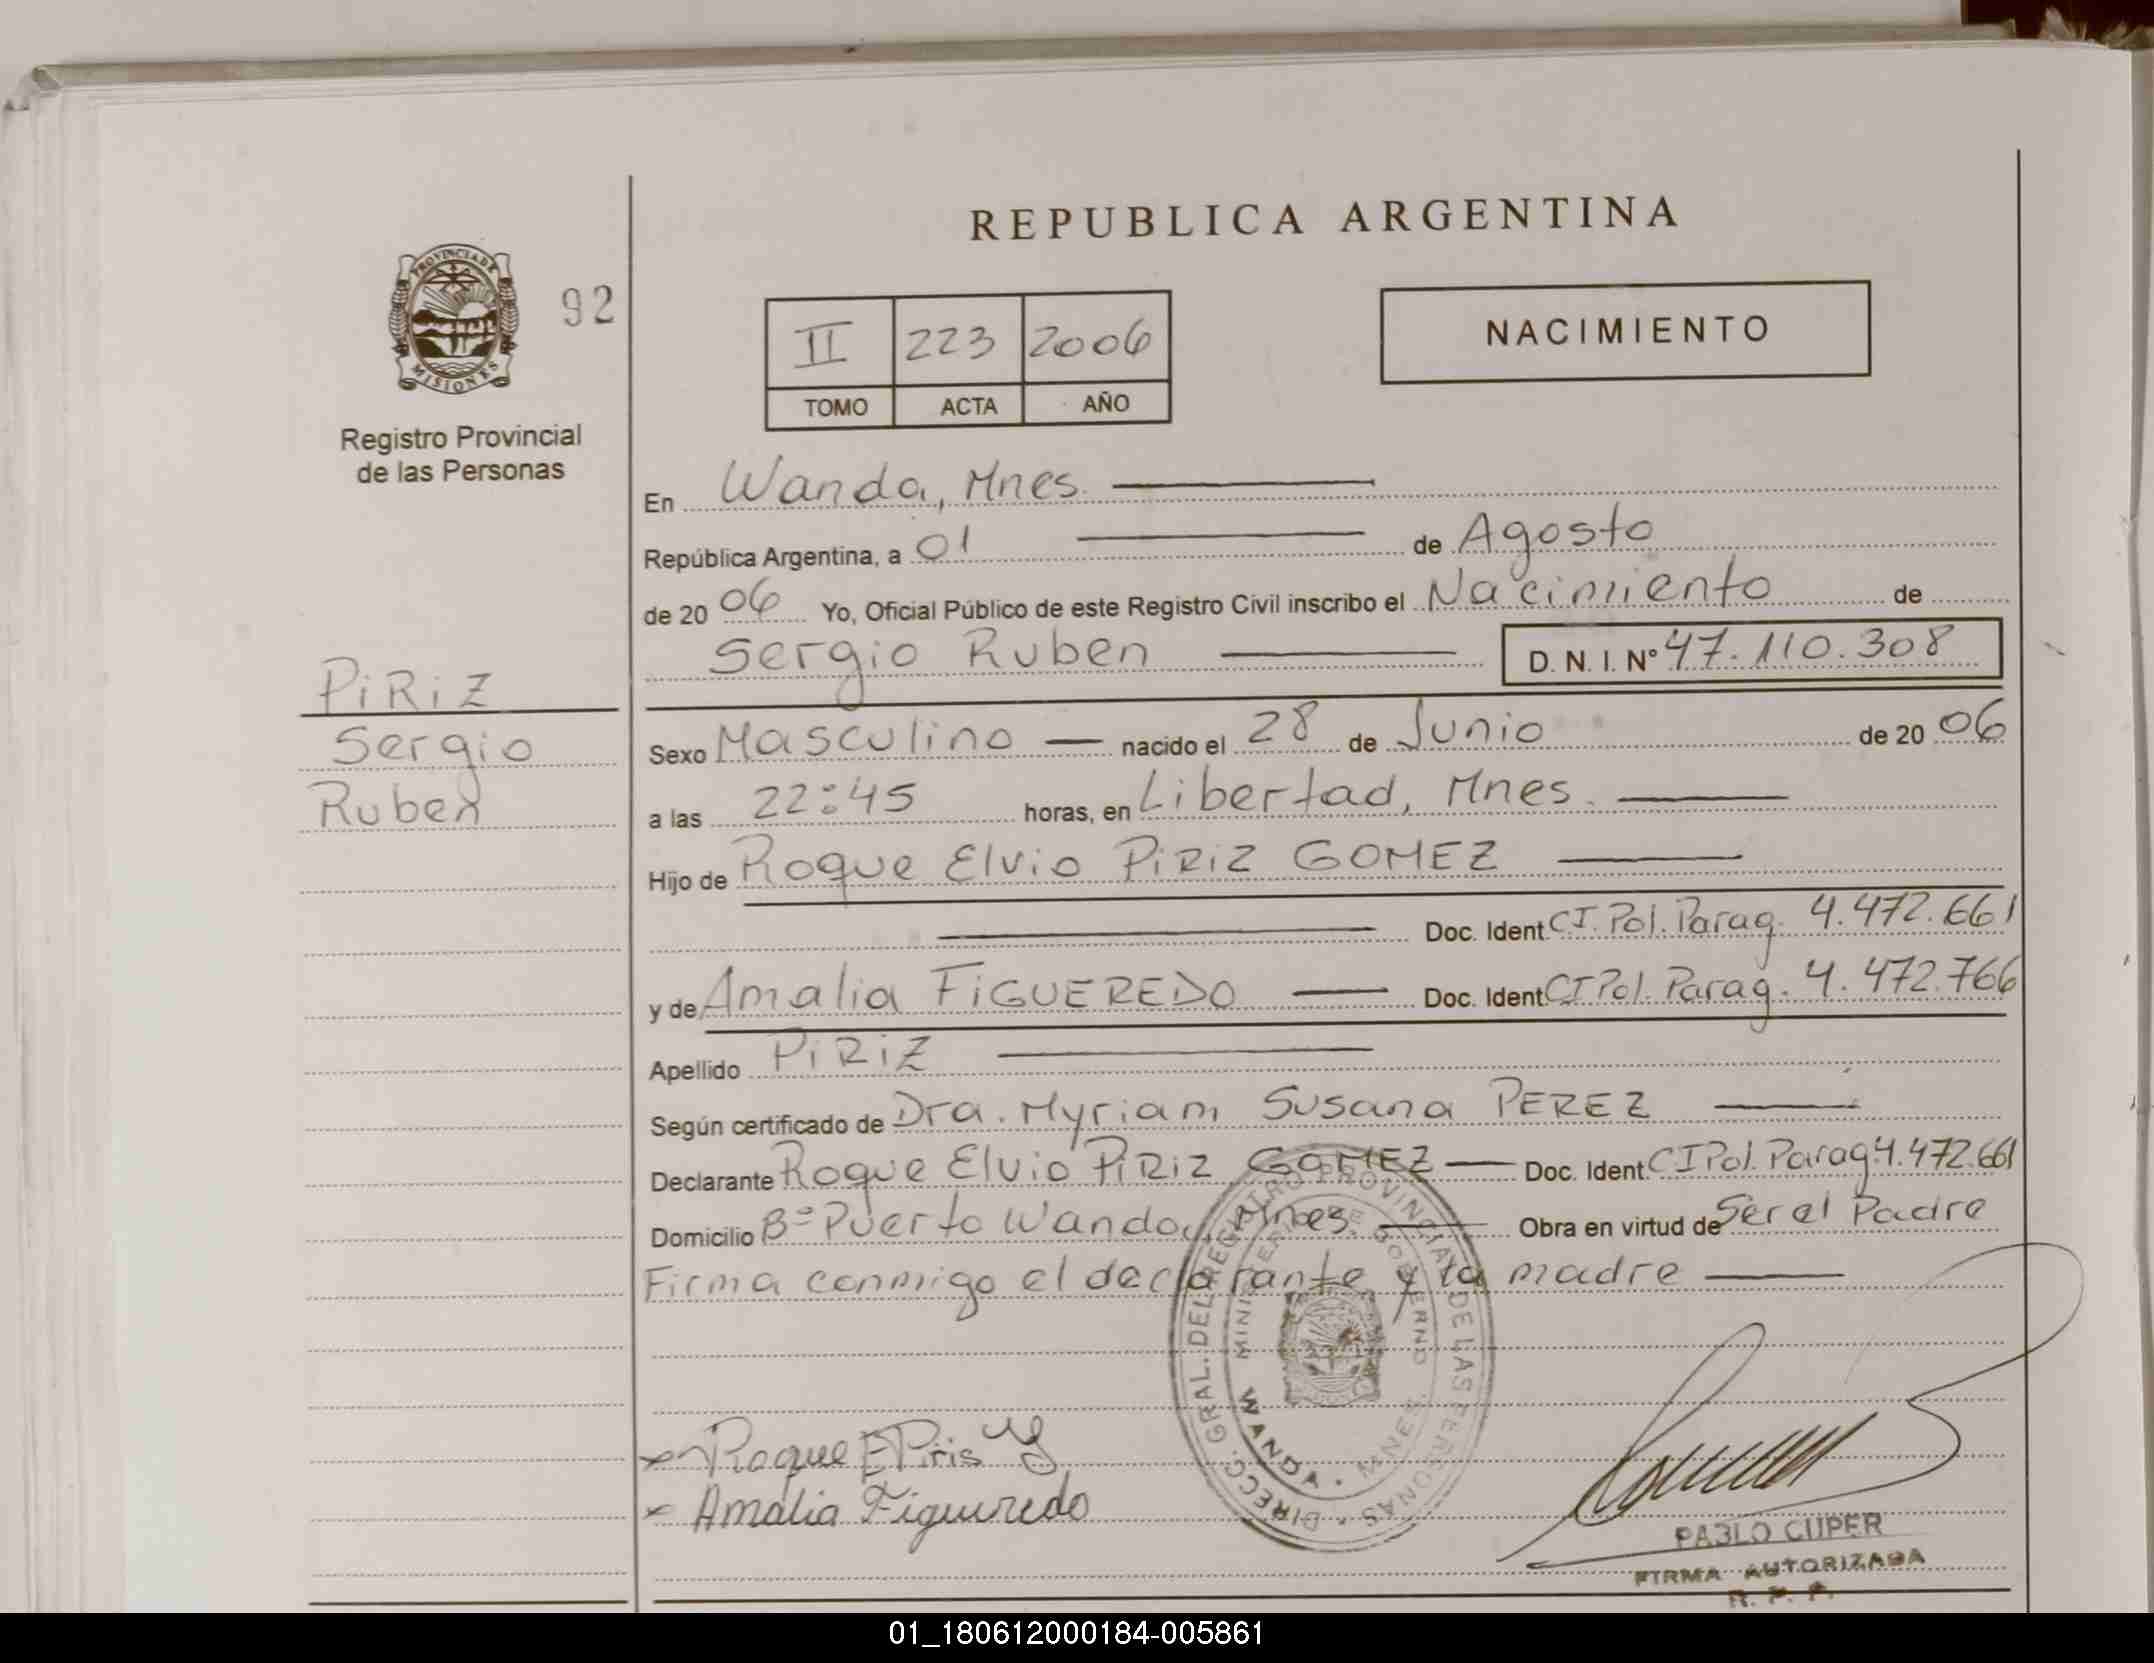 REPUBLICA ARGENTINA
PROVINCIA DE MISIONES
92
II 223 2006
TOMO ACTA AÑO
NACIMIENTO
Registro Provincial
de las Personas
En Wanda, Mnes.
República Argentina, a 01 de Agosto
de 20 06 Yo, Oficial Público de este Registro Civil inscribo el Nacimiento de
Sergio Ruben D. N. I. Nº 47.110.308
PiRiZ
Sergio
Ruben
Sexo Masculino nacido el 28 de Junio de 20 06
a las 22:45 horas, en Libertad, Mnes.
Hijo de Roque Elvio PiRiZ GOMEZ
Doc. Ident. CI. Pol. Parag. 4.472.661
y de Amalia FiGUEREDO Doc. Ident. CI Pol. Parag. 4.472.766
Apellido PiRiZ
Según certificado de Dra. Myriam Susana PEREZ
Declarante Roque Elvio PiRiZ GOMEZ Doc. Ident. CI Pol. Parag 4.472.661
Domicilio Bº Puerto Wanda, Mnes. Obra en virtud de Ser el Padre
Firma conmigo el declarante y la madre
DIRECC. GRAL. DEL REGISTRO PROVINCIAL DE LAS PERSONAS
MINISTERIO DE GOBIERNO
WANDA - MNES.
x Roque E Piris
x Amalia Figueredo
PABLO CUPER
FIRMA AUTORIZADA
R. P. P.
01_180612000184-005861